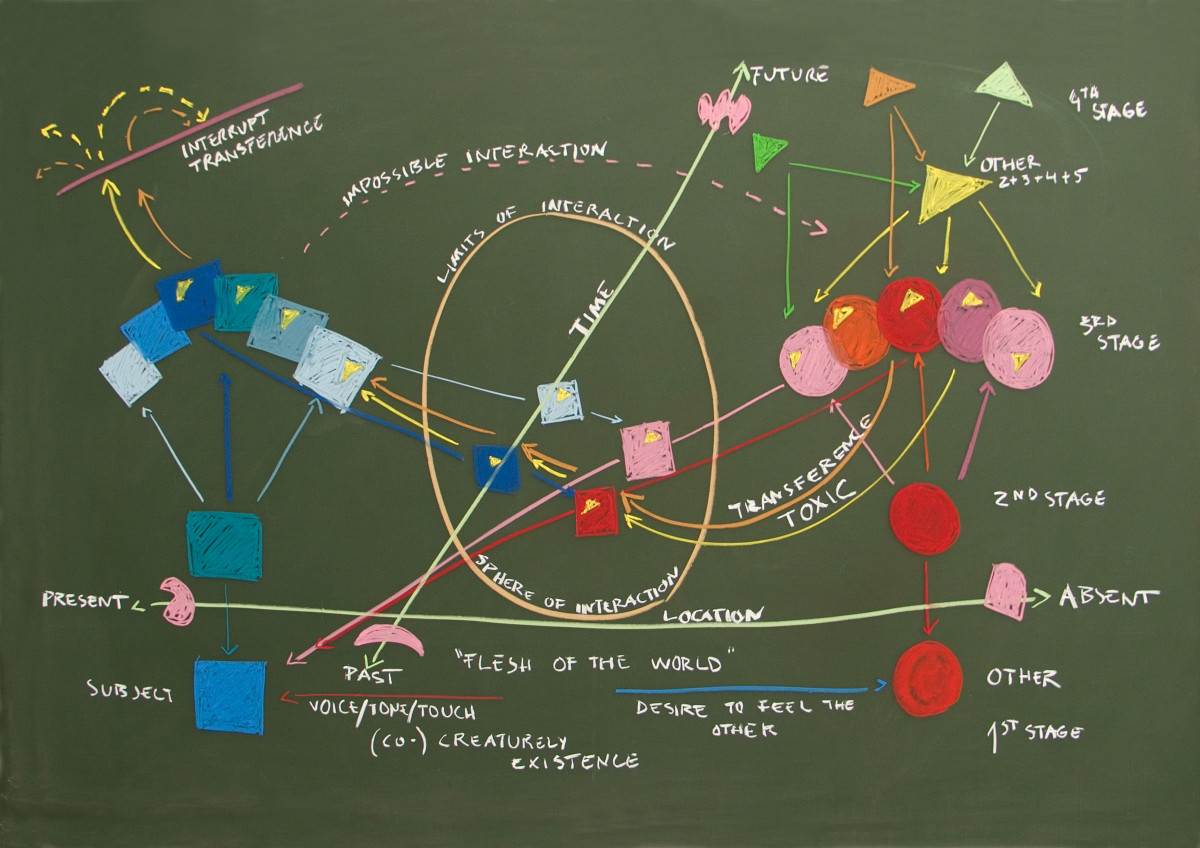 FUTURE
4TH
STAGE
INTERRUPT
TRANSFERENCE
IMPOSSIBLE INTERACTION
OTHER
2+3+4+5
LIMITS OF INTERACTION
TIME
3RD
STAGE
TRANSFERENCE
TOXIC
2ND STAGE
SPHERE OF INTERACTION
PRESENT
LOCATION
ABSENT
PAST
"FLESH OF THE WORLD"
SUBJECT
OTHER
VOICE/TONE/TOUCH
DESIRE TO FEEL THE
OTHER
(CO-) CREATURELY
EXISTENCE
1ST STAGE